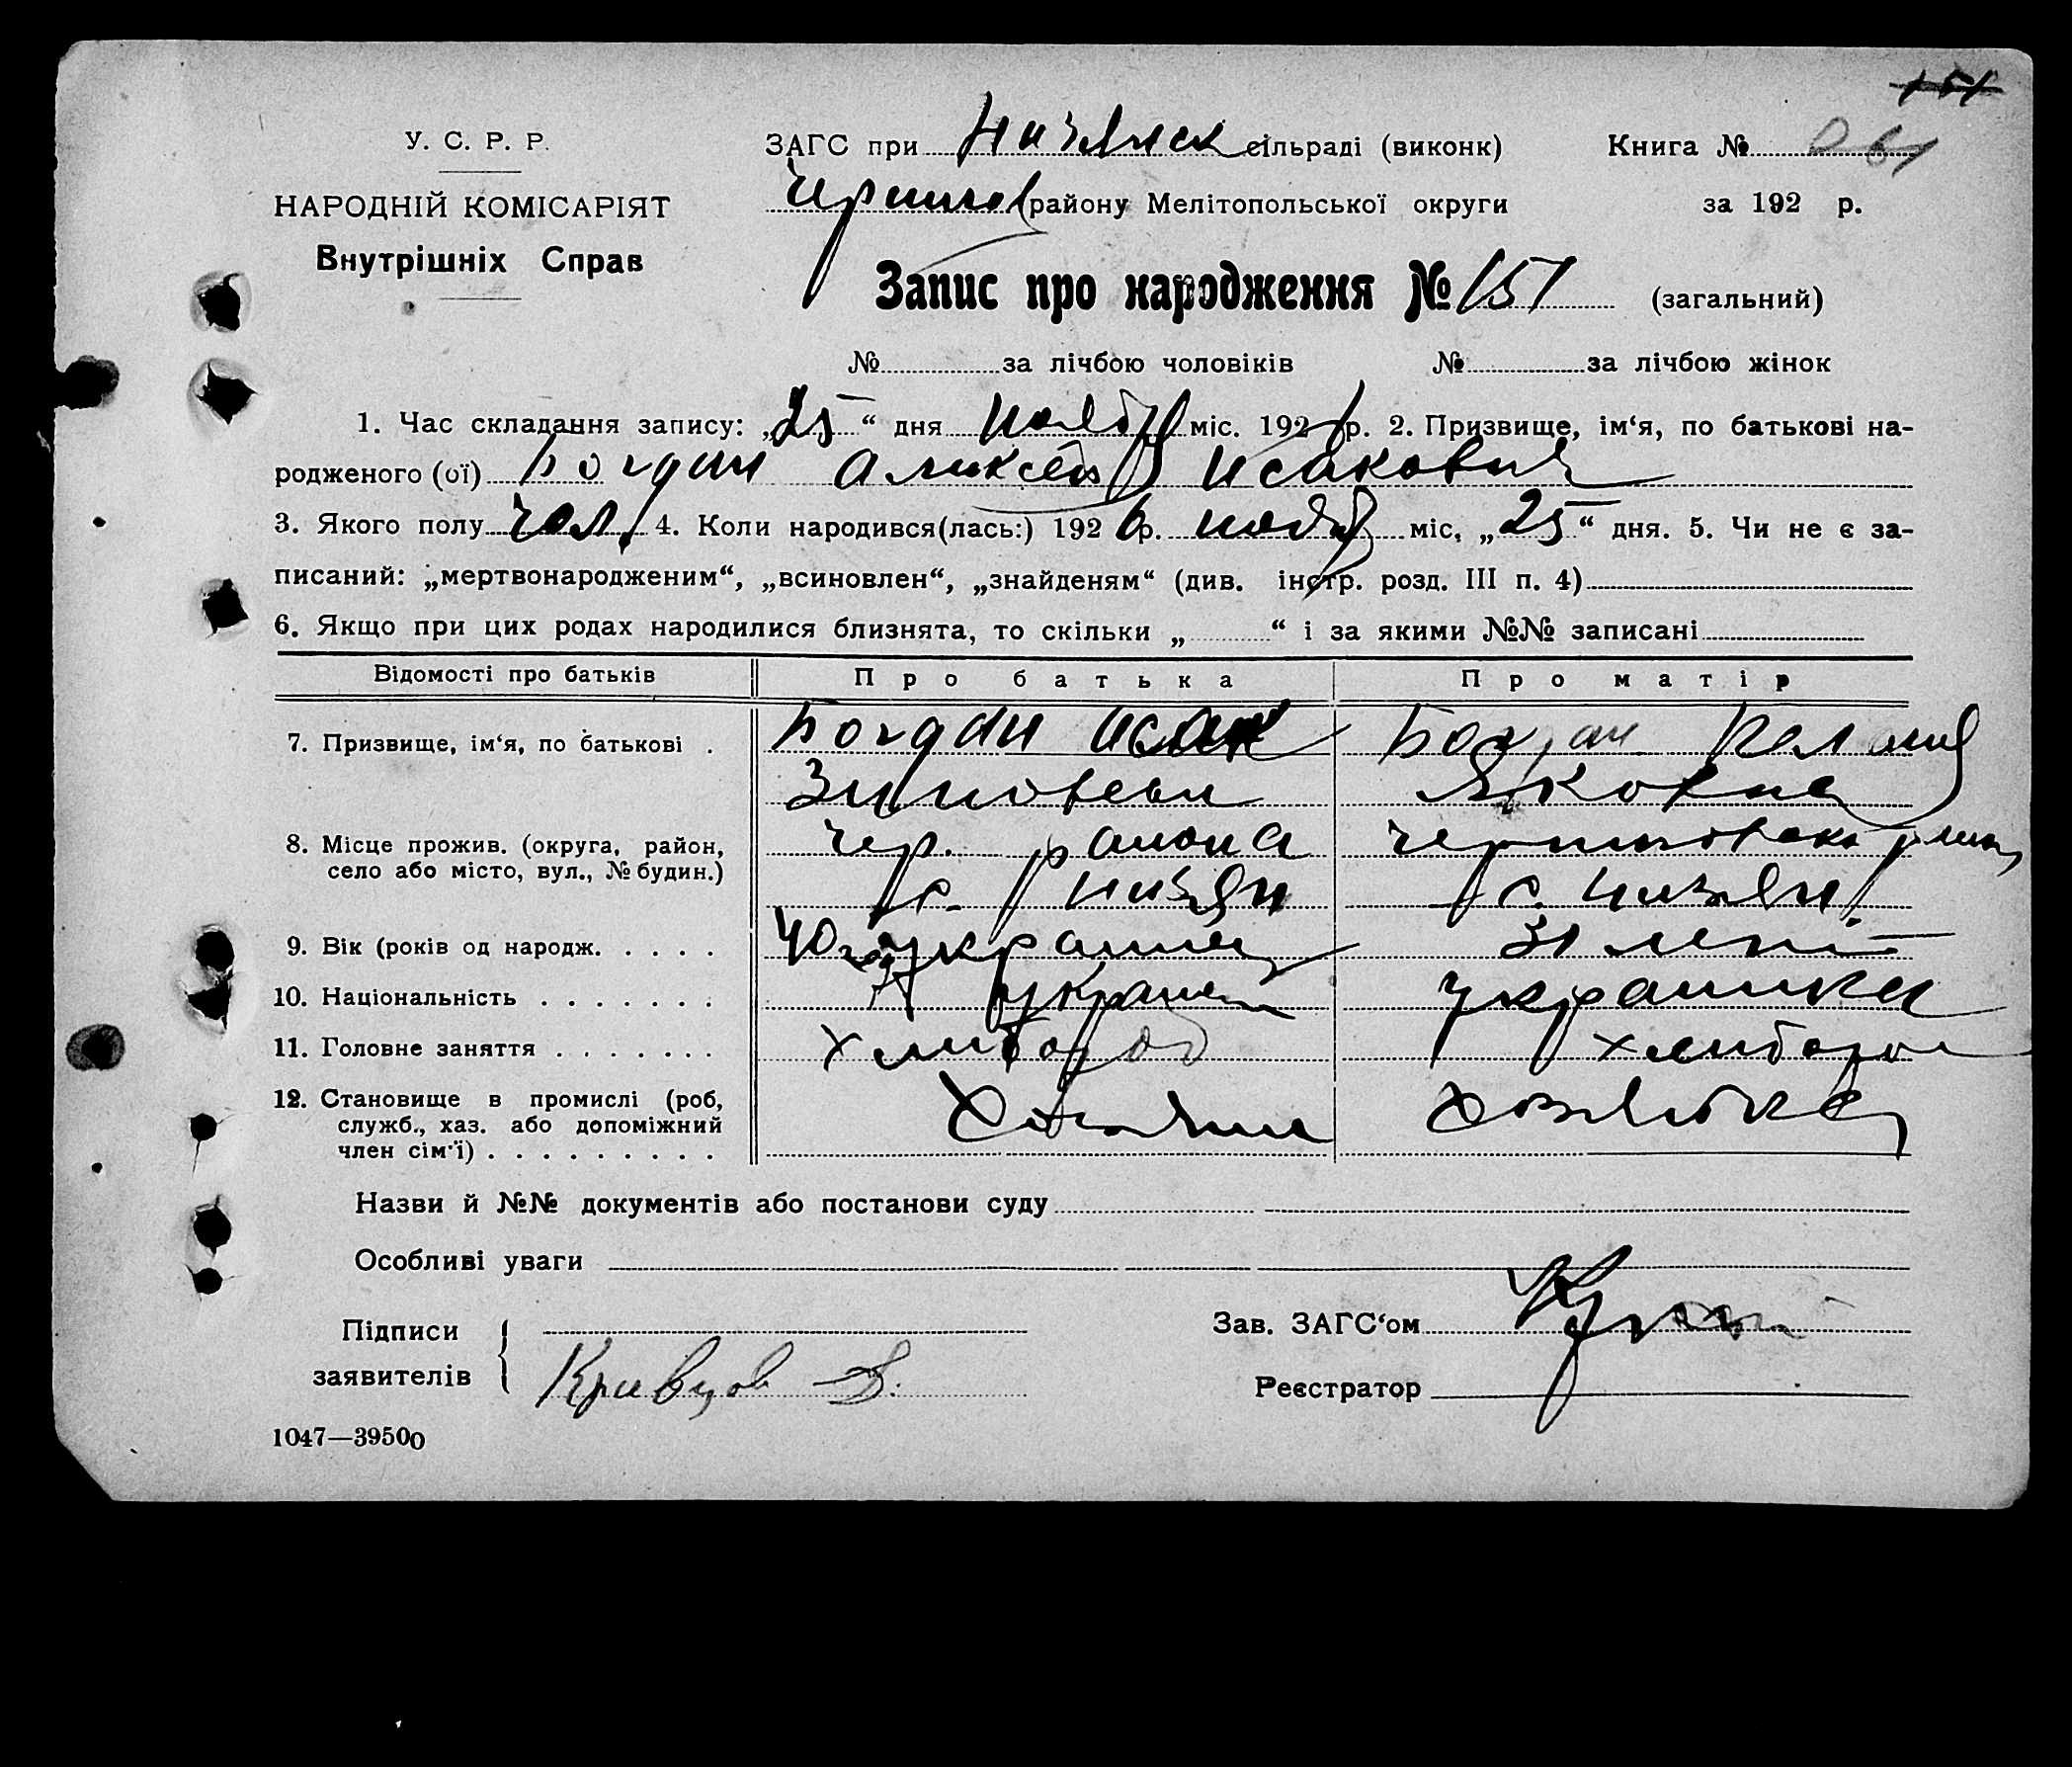 151
У. С. Р. Р.
НАРОДНІЙ КОМІСАРІЯТ
Внутрішніх Справ
ЗАГС при Низянск сільраді (виконк)
Книга №
Черниговс району Мелітопольської округи
за 192 р.
Запис про народження № 151 (загальний)
№ за лічбою чоловіків № за лічбою жінок
1. Час складання запису: „25“ дня ноября міс. 1926 р. 2. Призвище, ім‘я, по батькові на-
родженого (ої) Богдан Алексей Исакович
3. Якого полу чол. 4. Коли народився(лась:) 1926 р. ноября міс, „25“ дня. 5. Чи не є за-
писаний: „мертвонародженим“, „всиновлен“, „знайденям“ (див. інстр. розд. III п. 4)
6. Якщо при цих родах народилися близнята, то скільки „ “ і за якими №№ записані
Відомості про батьків Про батька Про матір
7. Призвище, ім‘я, по батькові . Богдан Исак Богдан
Зиновеви Яковна
8. Місце прожив. (округа, район, Чер. района
село або місто, вул., № будин.) с. Низян с. Низян.
9. Вік (років од народж. . . . . 40 31 лет
10. Національність . . . . . . . украинец украинка
11. Головне заняття . . . . . . . хлибороб хлибороб
12. Становище в промислі (роб, Хозяин Хозяйка
служб., хаз. або допоміжний
член сім‘ї) . . . . . . . . .
Назви й №№ документів або постанови суду
Особливі уваги
Підписи
заявителів
Кривцов
Зав. ЗАГС‘ом
Реєстратор
1047—39500